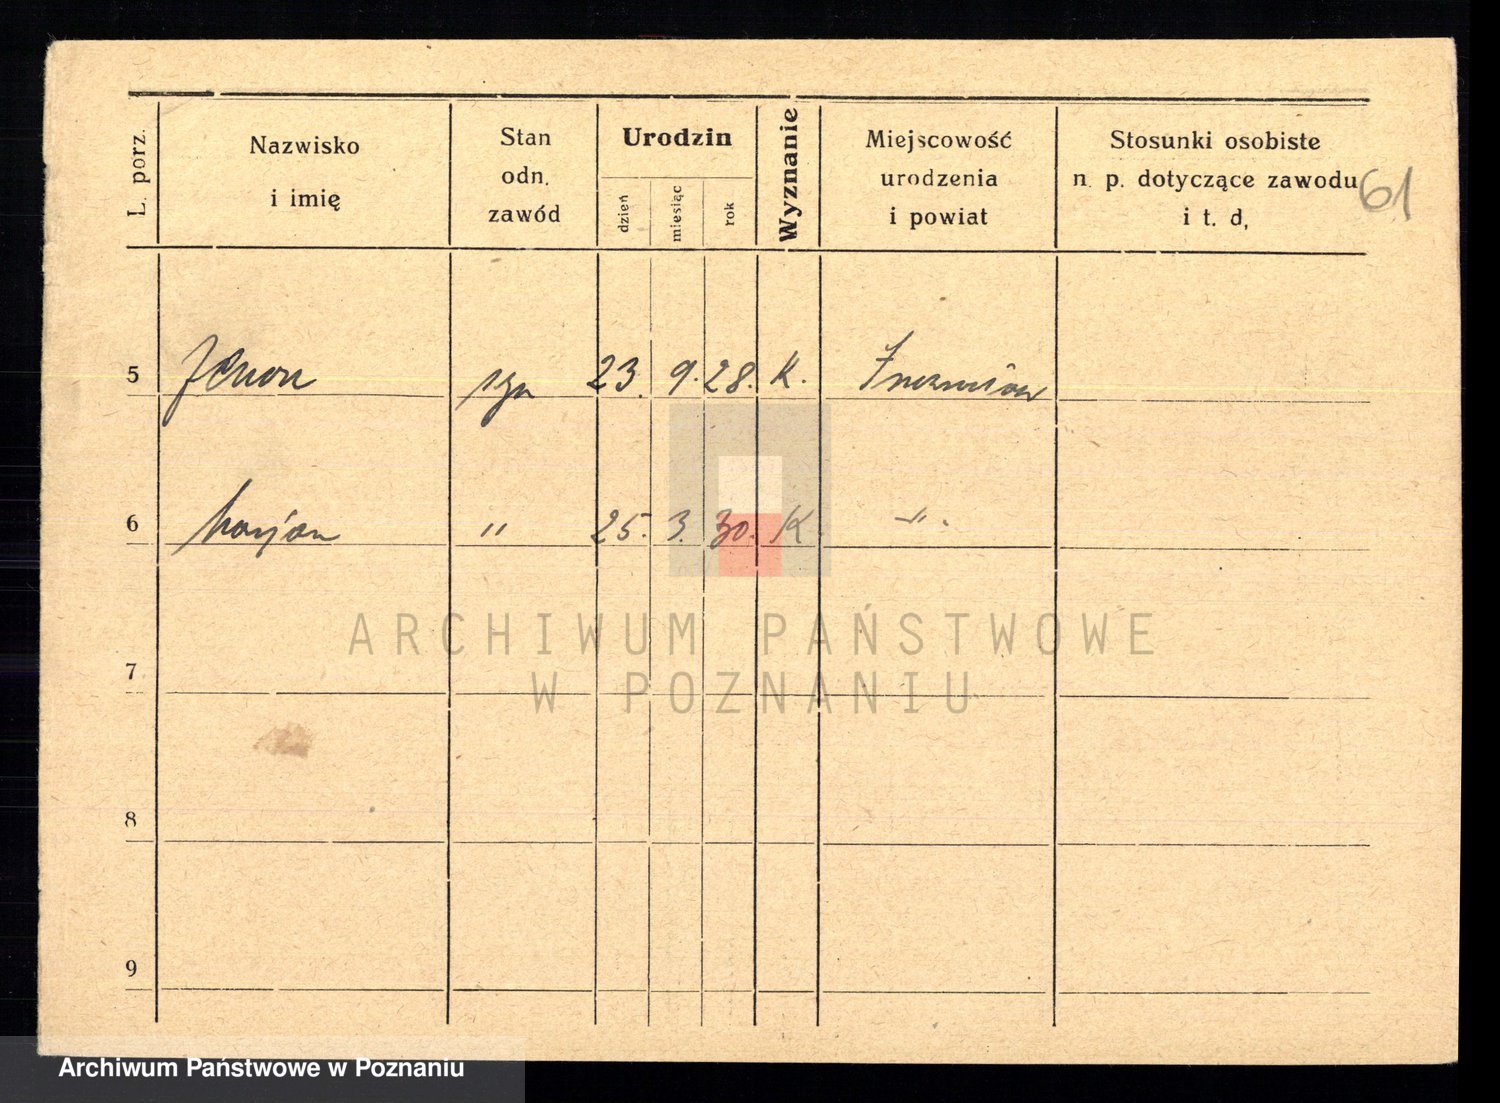 L. porz.
Nazwisko
i imię
Stan
odn.
zawód
Urodzin
dzień
miesiąc
rok
Wyznanie
Miejscowość
urodzenia
i powiat
Stosunki osobiste
n. p. dotyczące zawodu
i t. d,
61
5 Zenon syn 23. 9. 28. K.
6 Marjan " 25. 3. 30. K. -"-
7
8
9
ARCHIWUM PAŃSTWOWE
W POZNANIU
Archiwum Państwowe w Poznaniu